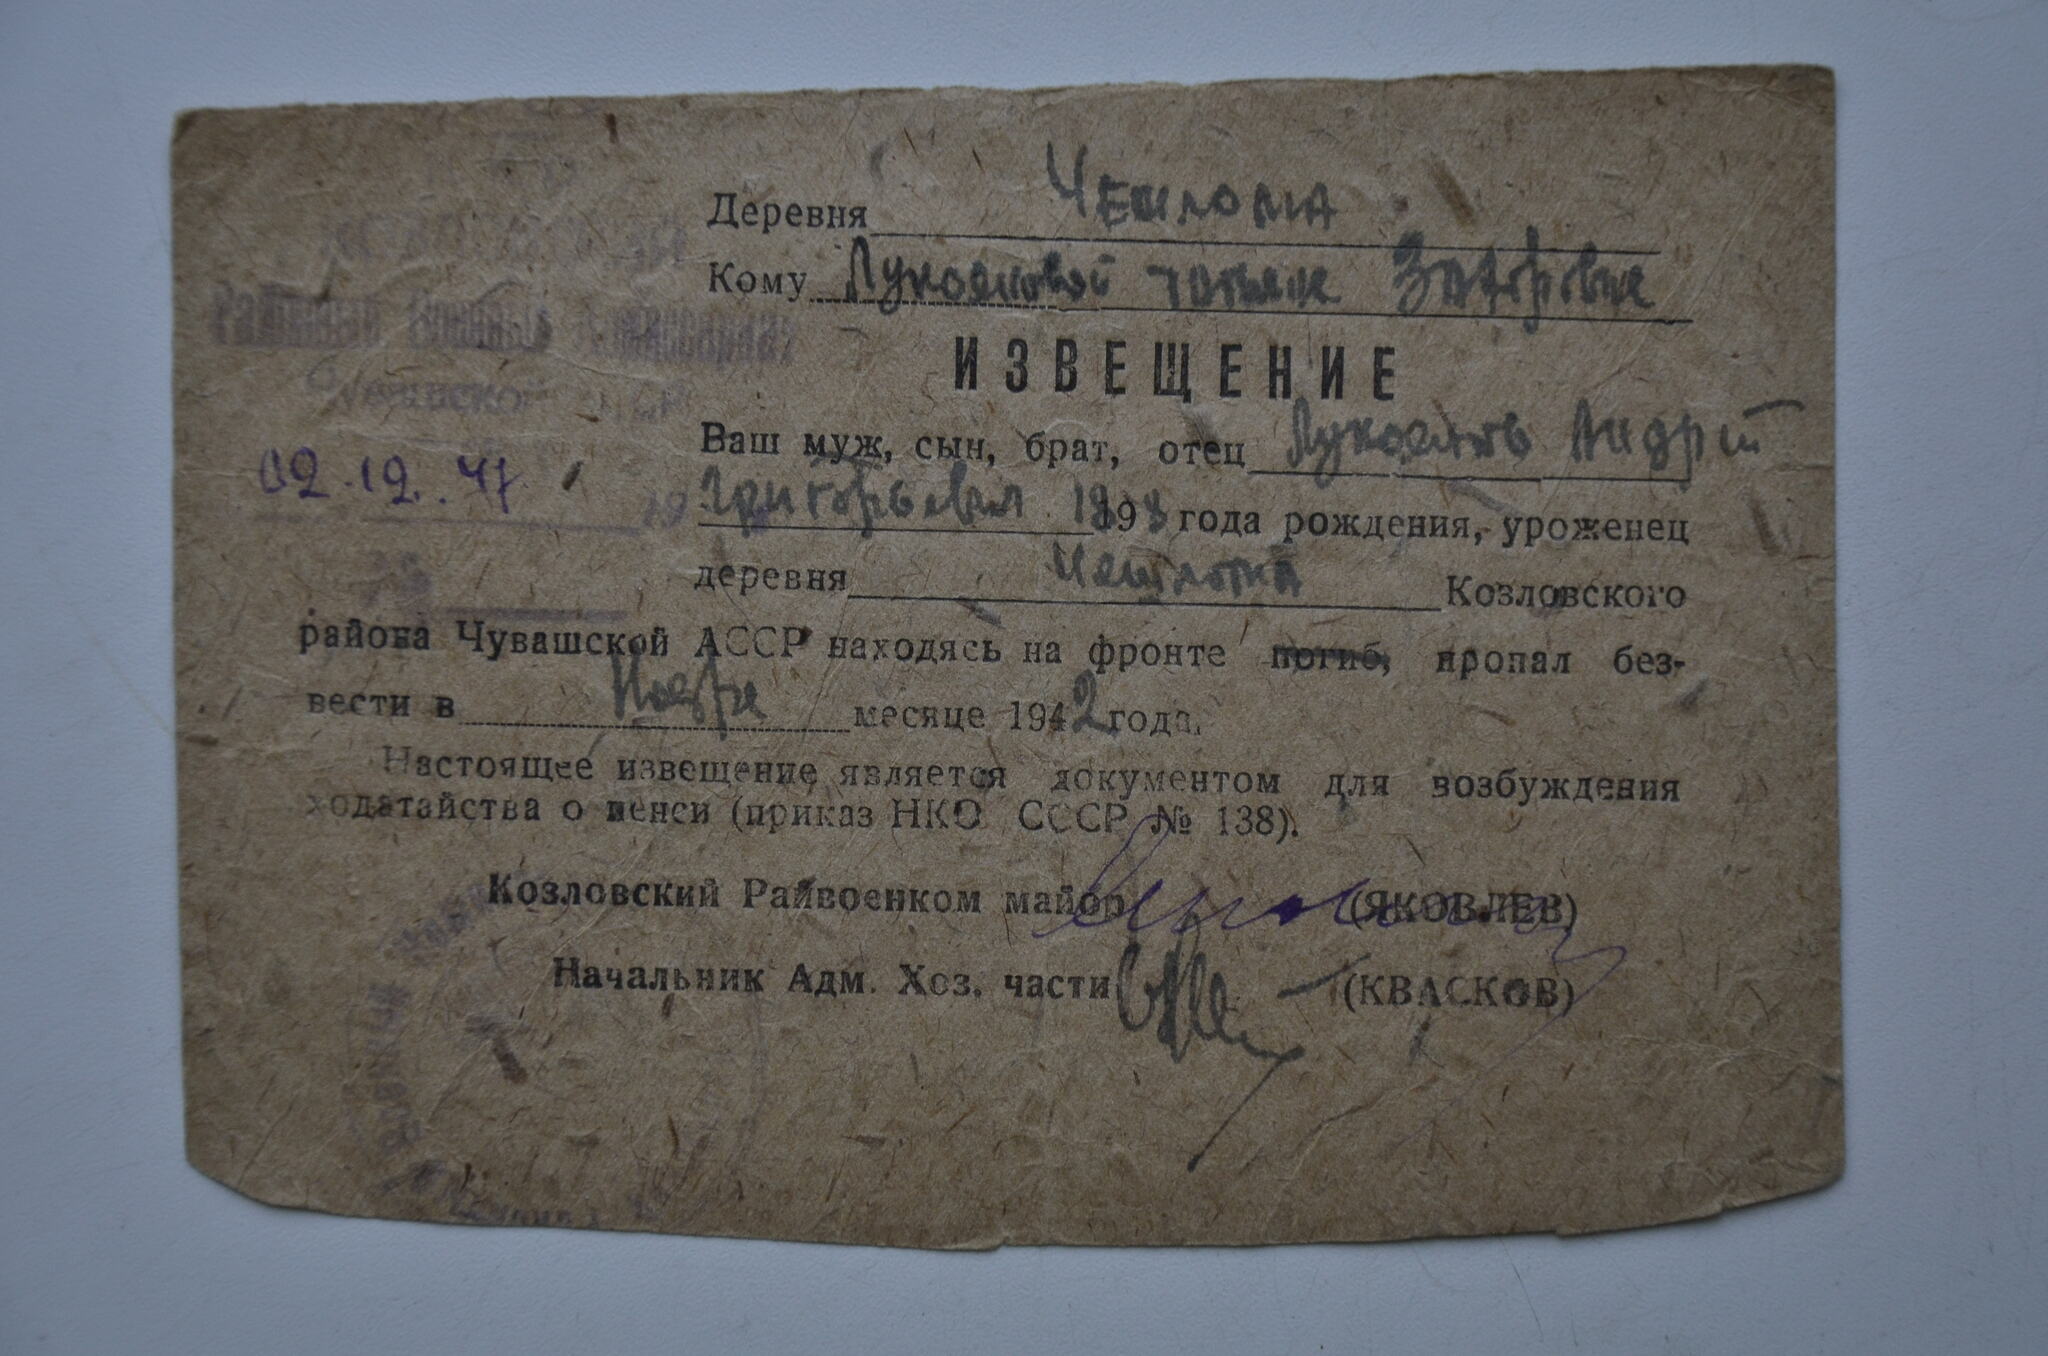 Деревня Чешлома
Кому Лукояновой Татьяне Захаровне
Районный Военный Комиссариат
Чувашской АССР
ИЗВЕЩЕНИЕ
Ваш муж, сын, брат, отец Лукоянов Андрей
02.12.47
19 Григорьевич года рождения, уроженец
деревня Чешлома Козловского
района Чувашской АССР находясь на фронте погиб, пропал без-
вести в Ноябре месяце 1942 года.
Настоящее извещение является документом для возбуждения
ходатайства о пенси (приказ НКО СССР № 138).
Козловский Райвоенком майор (ЯКОВЛЕВ)
Начальник Адм. Хоз. части (КВАСКОВ)